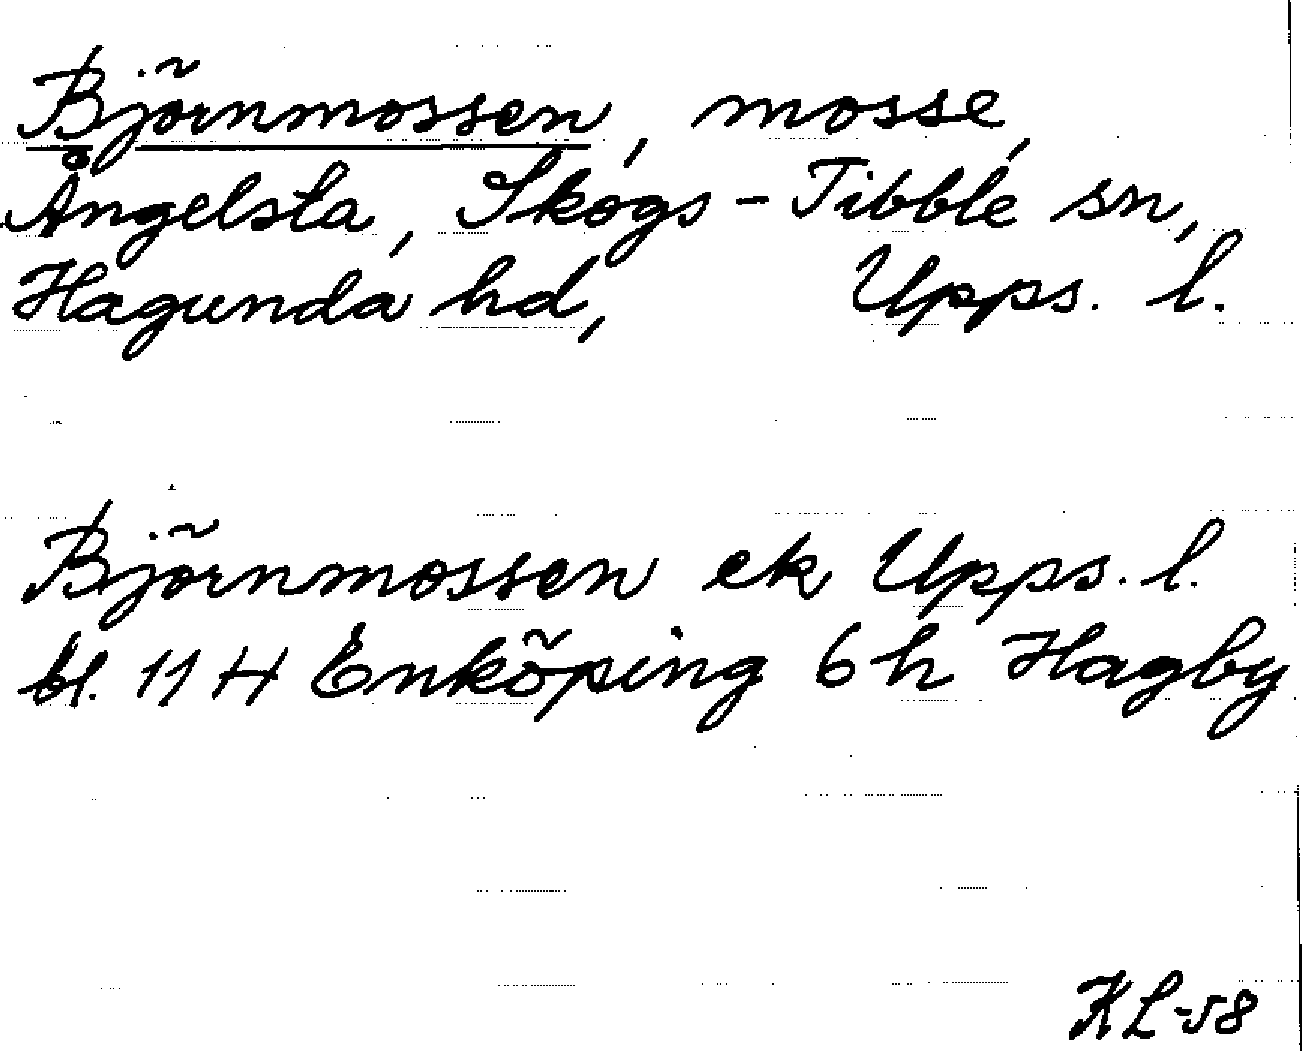 Björnmossen, mosse,
Ångelsta, Skogs-Tibble sn,
Hagunda hd, Upps. l.
Björnmossen ek Upps. l.
bl. 11 H Enköping 6 h Hagby
KL-58